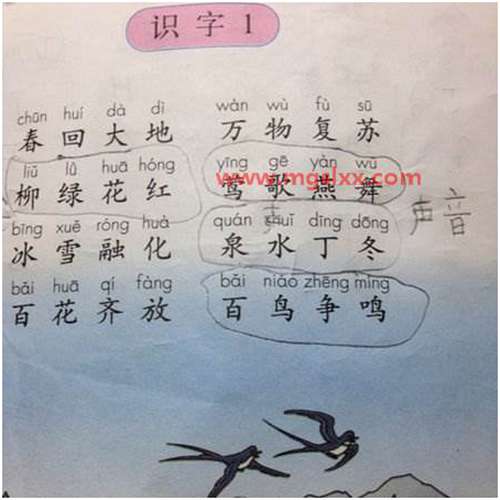 识字1
chūn huí dà dì wàn wù fù sū
春回大地 万物复苏
liǔ lǜ huā hóng yīng gē yàn wǔ
柳绿花红 莺歌燕舞
www.mgxlxx.com
bīng xuě róng huà quán shuǐ dīng dōng
冰雪融化 泉水丁冬
声音
bǎi huā qí fàng bǎi niǎo zhēng míng
百花齐放 百鸟争鸣